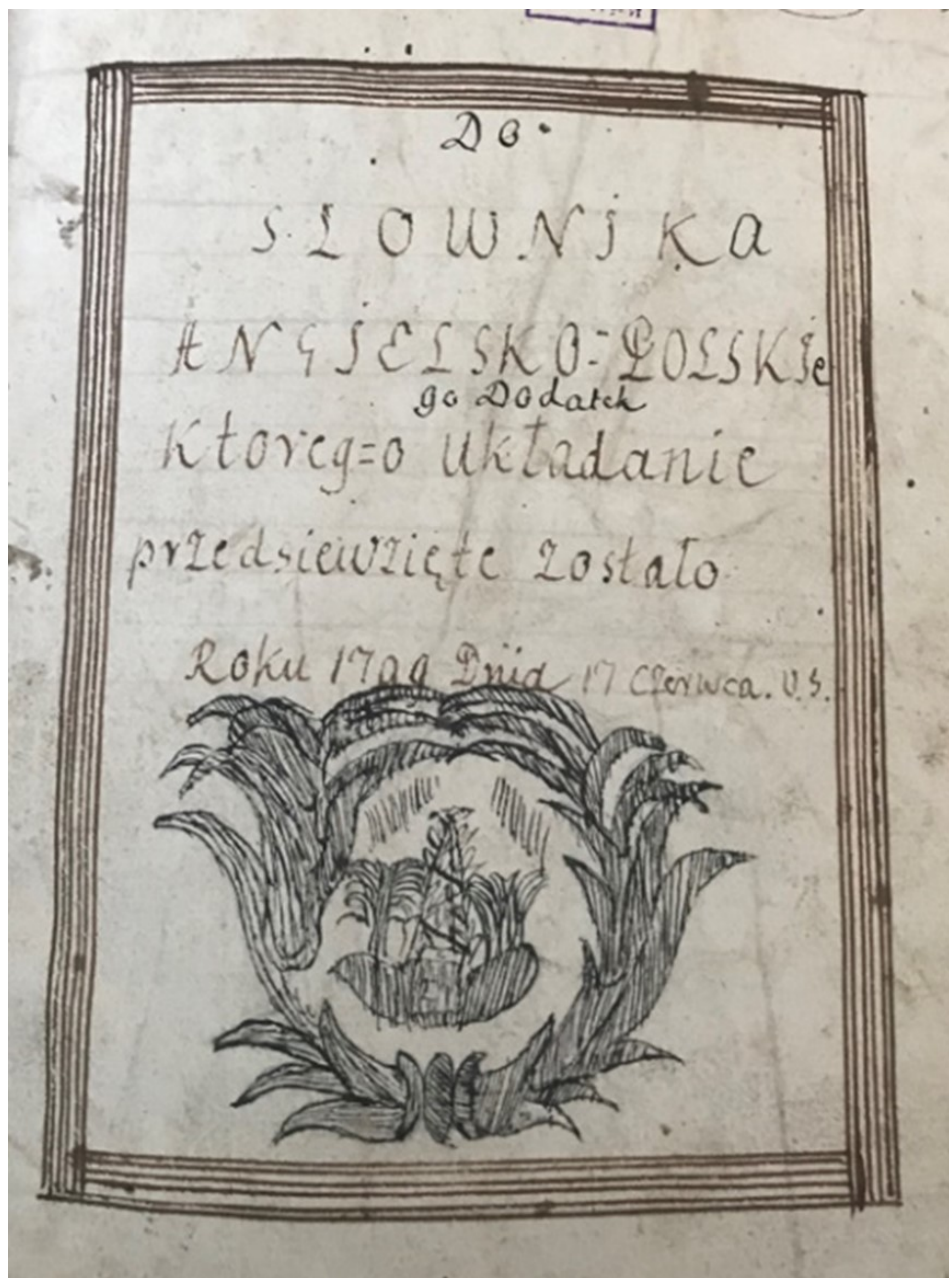 Do
SŁOWNIKa
ANGIELSKO=POLSKIe
go Dodatek
Ktoreg=o Układanie
przedsiewzięte zostało
Roku Dnia 17 Czerwca. V.S.